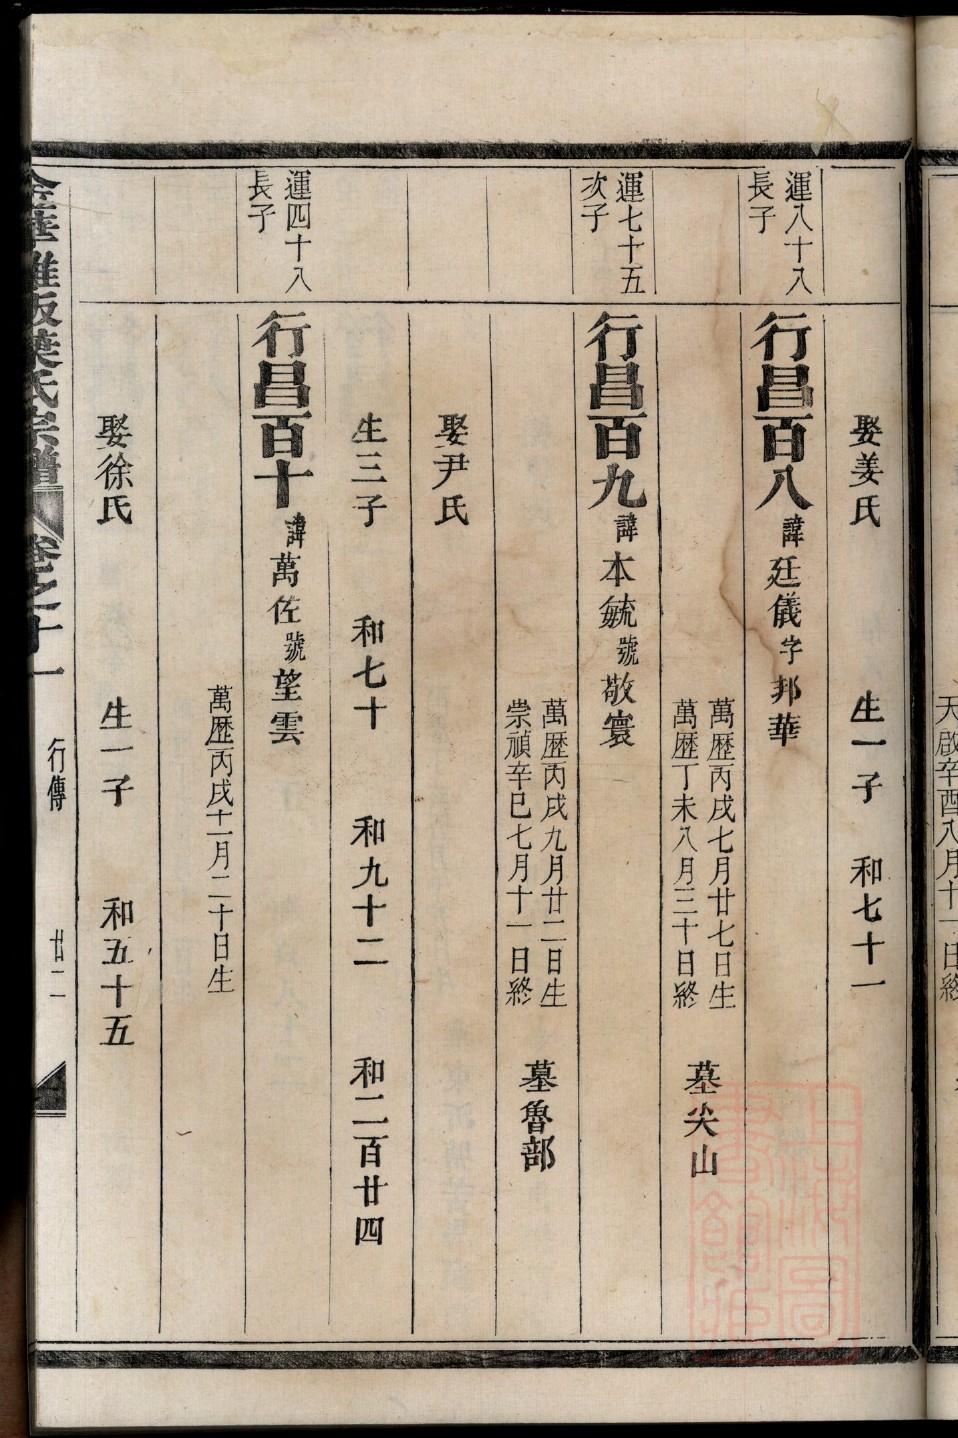 天啟辛酉八月十一日終
娶姜氏 生一子 和七十一
運八十八
長子
行昌百八 諱廷儀字邦華
萬歷丙戌七月廿七日生
萬歷丁未八月三十日終
墓尖山
運七十五
次子
行昌百九 諱本毓號敬寰
萬歷丙戌九月廿二日生
崇禎辛巳七月十一日終
墓魯部
娶尹氏
生三子 和七十 和九十二 和二百廿四
運四十八
長子
行昌百十 諱萬佐號望雲
萬歷丙戌十一月二十日生
娶徐氏 生一子 和五十五
金華雅畈葉氏宗譜 卷之十一 行傳 廿二
上海圖書館藏